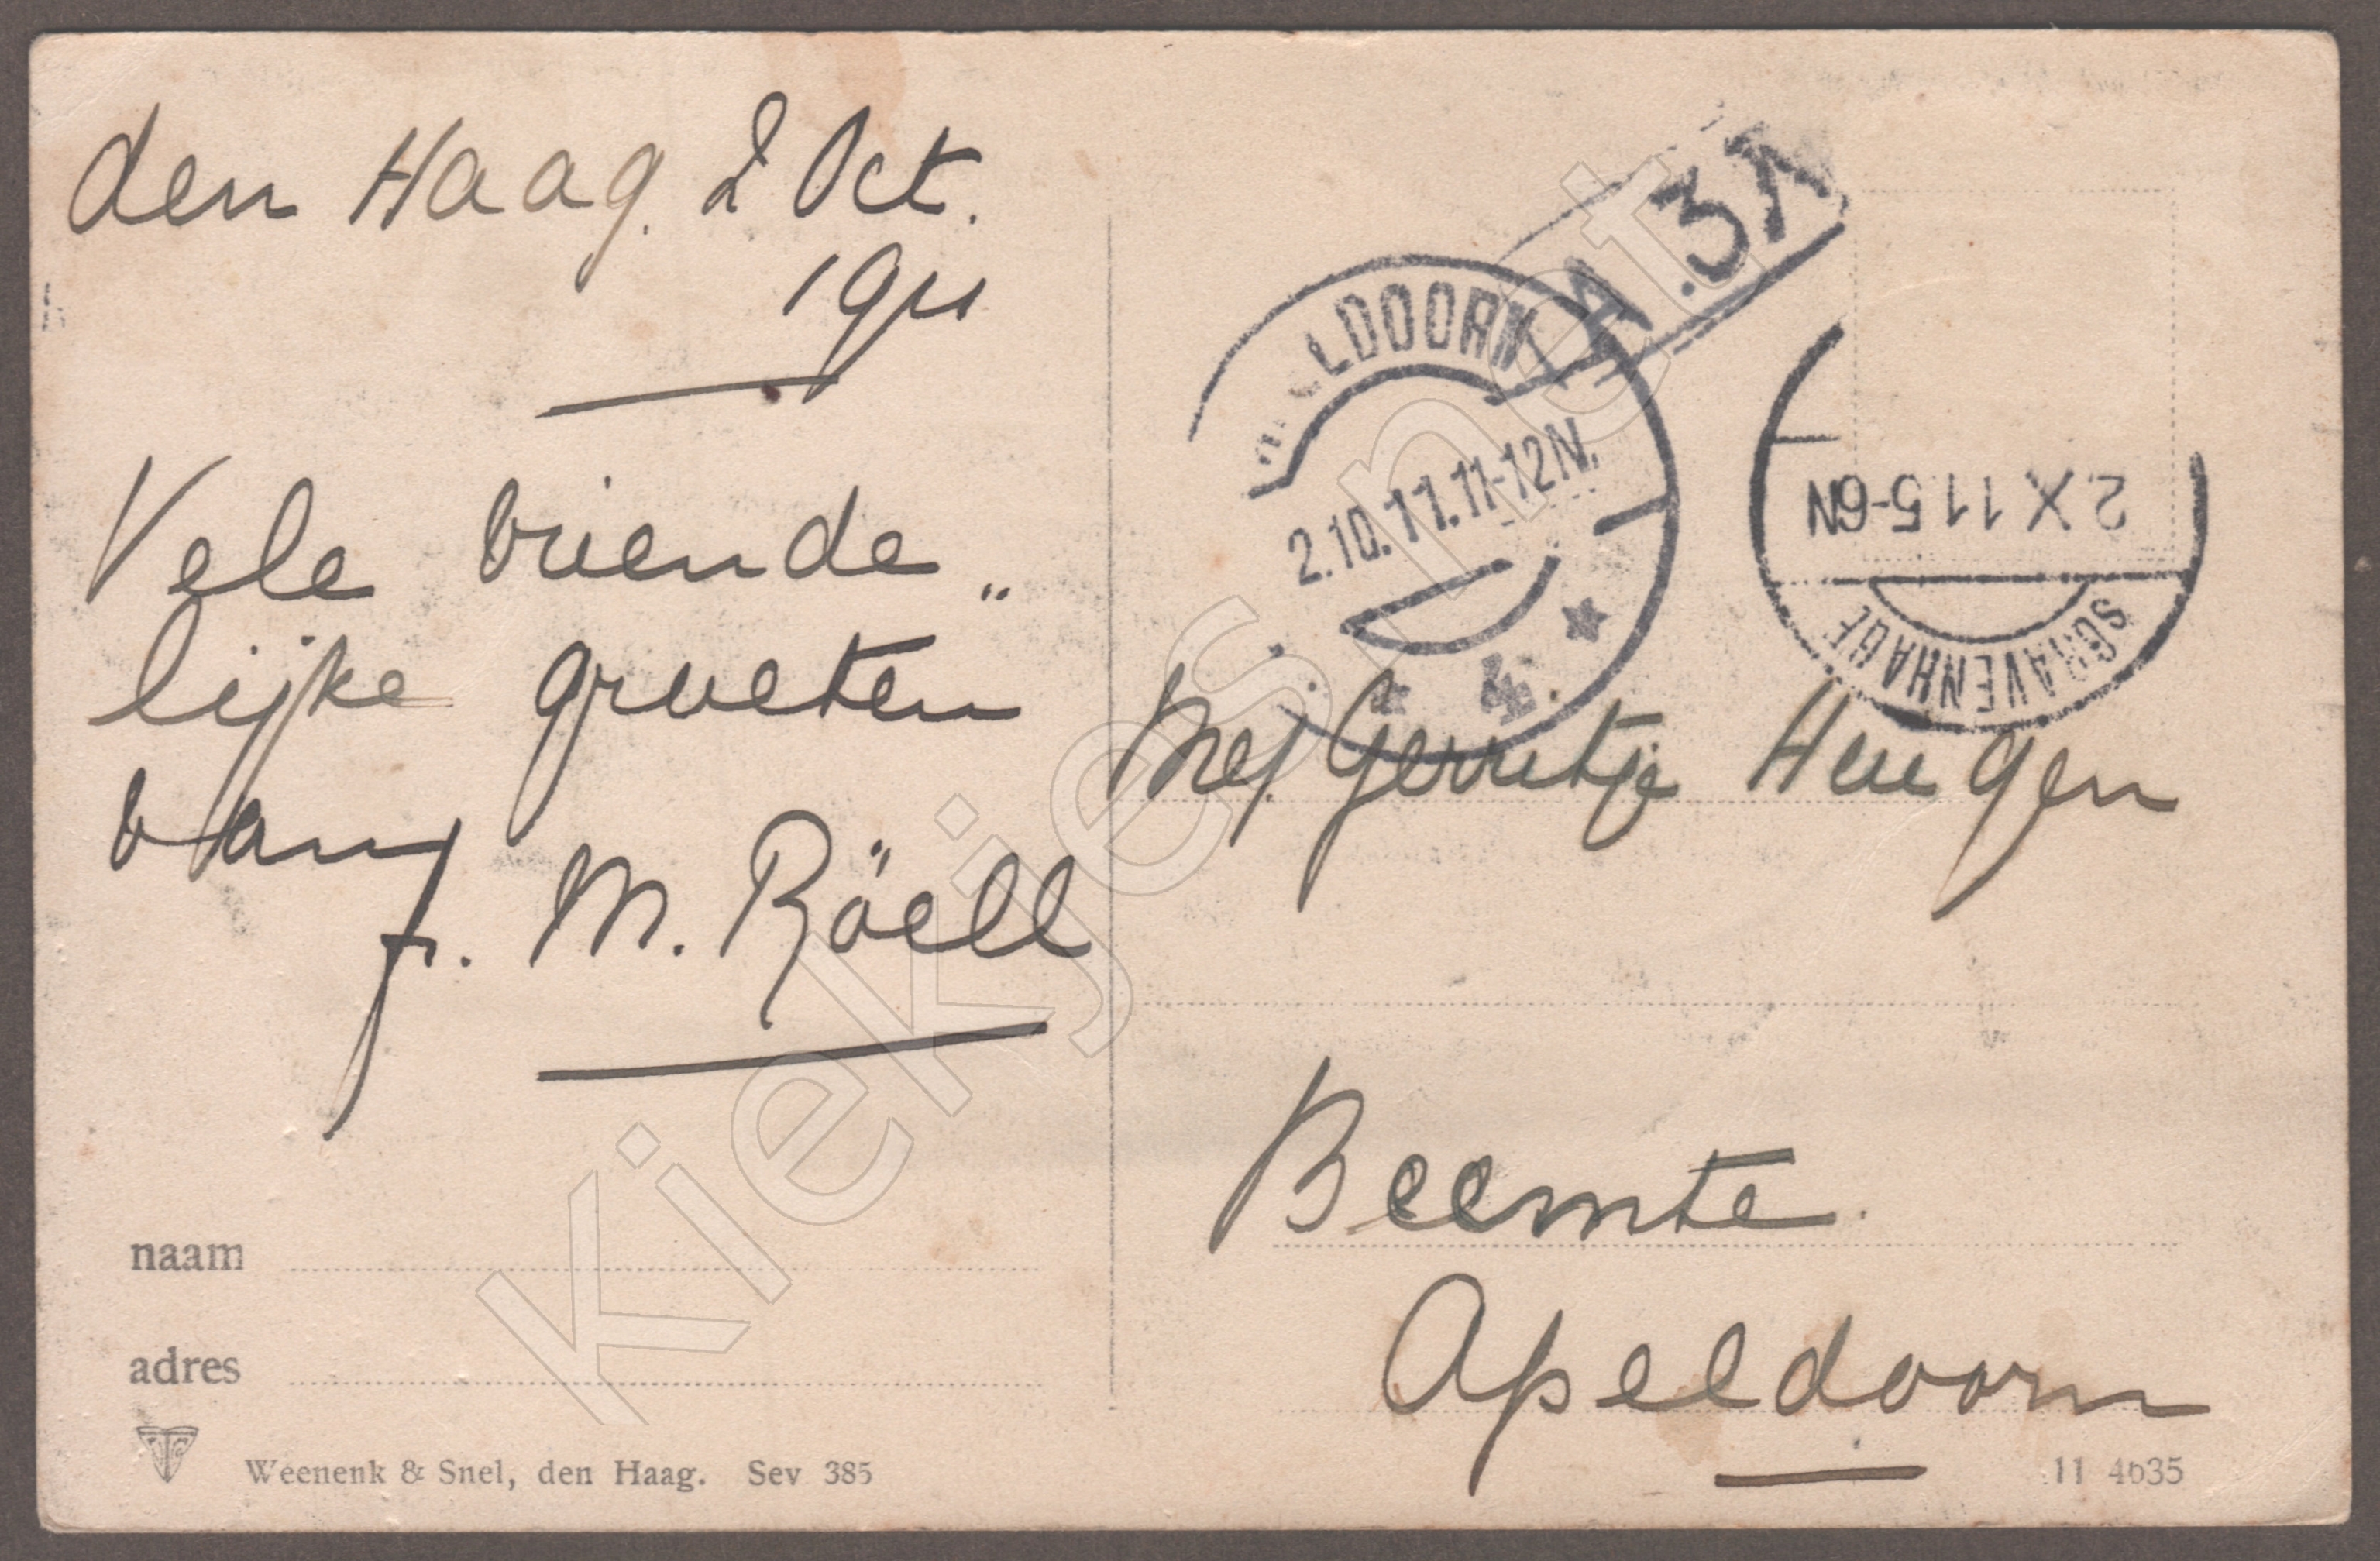 den Haag. 2 Oct.
1911
Vele vriende„
lijke groeten
van
f. M. Röell
naam
adres
Weenenk & Snel, den Haag. Sev 385
A.3
LDOORN
2.10.11.11-12N.
4
2 X 11 5-6N
SGRAVENHAGE
Mej. Gerritje Heugen
Beemte.
Apeldoorn
11 4635
Kiekjes.net